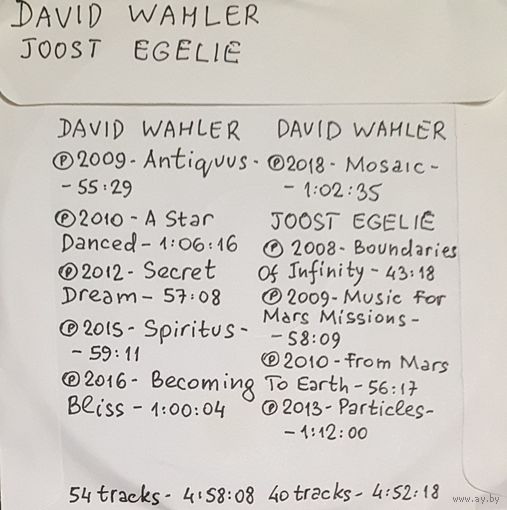 DAVID WAHLER
JOOST EGELIE
DAVID WAHLER
Ⓟ2009- Antiquus -
- 55:29
Ⓟ2010 - A Star
Danced - 1:06:16
Ⓟ2012 - Secret
Dream - 57:08
Ⓟ2015 - Spiritus -
- 59:11
Ⓟ2016 - Becoming
Bliss - 1:00:04
54 tracks - 4:58:08
DAVID WAHLER
Ⓟ2018 - Mosaic -
- 1:02:35
JOOST EGELIE
Ⓟ 2008 - Boundaries
Of Infinity - 43:18
Ⓟ2009 - Music For
Mars Missions -
- 58:09
Ⓟ2010 - From Mars
To Earth - 56:17
Ⓟ2013 - Particles -
- 1:12:00
40 tracks - 4:52:18
www.ay.by